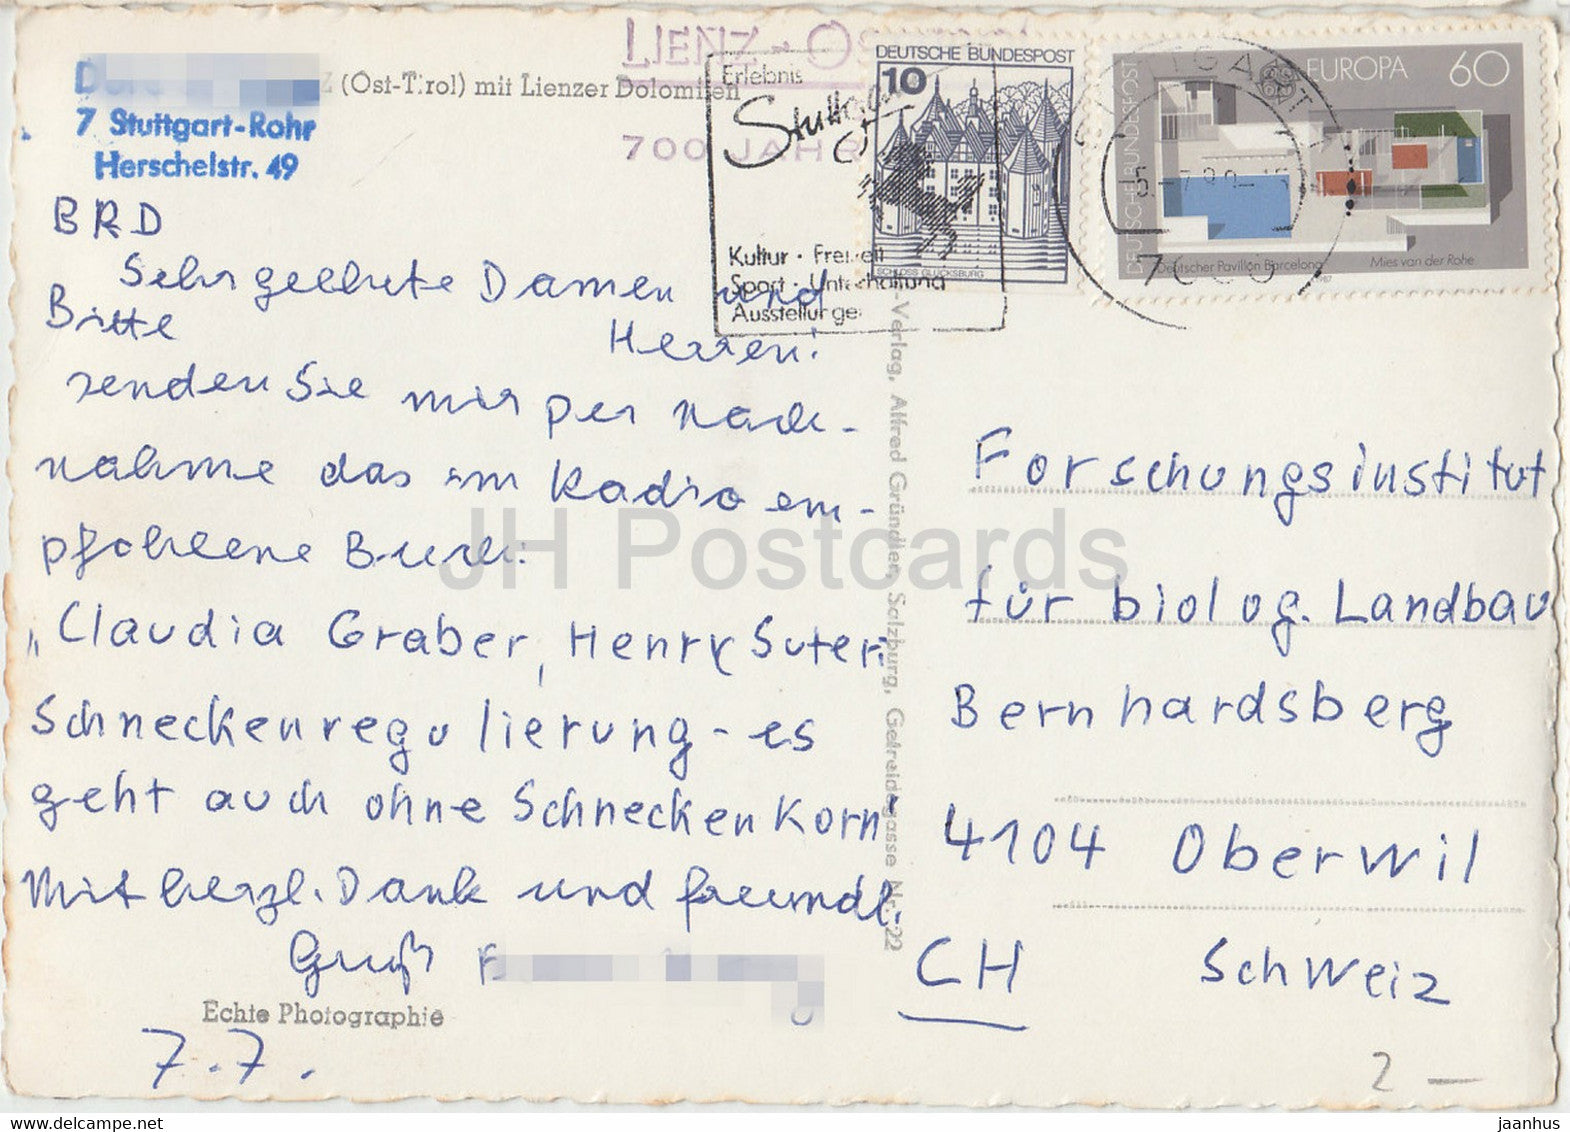 LIENZ-
(Ost-Tirol) mit Lienzer Dolomiten
7 Stuttgart-Rohr
Herschelstr. 49
700 JAHR
Erlebnis
Stuttgart
Kultur · Freizeit
Sport · Unterhaltung
Ausstellungen
DEUTSCHE BUNDESPOST
10
SCHLOSS GLÜCKSBURG
STUTTGART
7000
DEUTSCHE BUNDESPOST
EUROPA 60
Deutscher Pavillon Barcelona
Mies van der Rohe
BRD
Sehr geehrte Damen und
Herren!
Bitte
senden Sie mir per Nach-
nahme das im Radio em-
pfohlene Buch:
„Claudia Graber, Henry Suter:
Schneckenregulierung - es
geht auch ohne Schneckenkorn"
Mit herzl. Dank und freundl.
Gruß
7.7.
Echte Photographie
-Verlag, Alfred Gründler, Salzburg, Getreidegasse Nr. 22
Forschungsinstitut
für biolog. Landbau
Bernhardsberg
4104 Oberwil
CH Schweiz
2 —
JH Postcards
www.delcampe.net
jaanhus